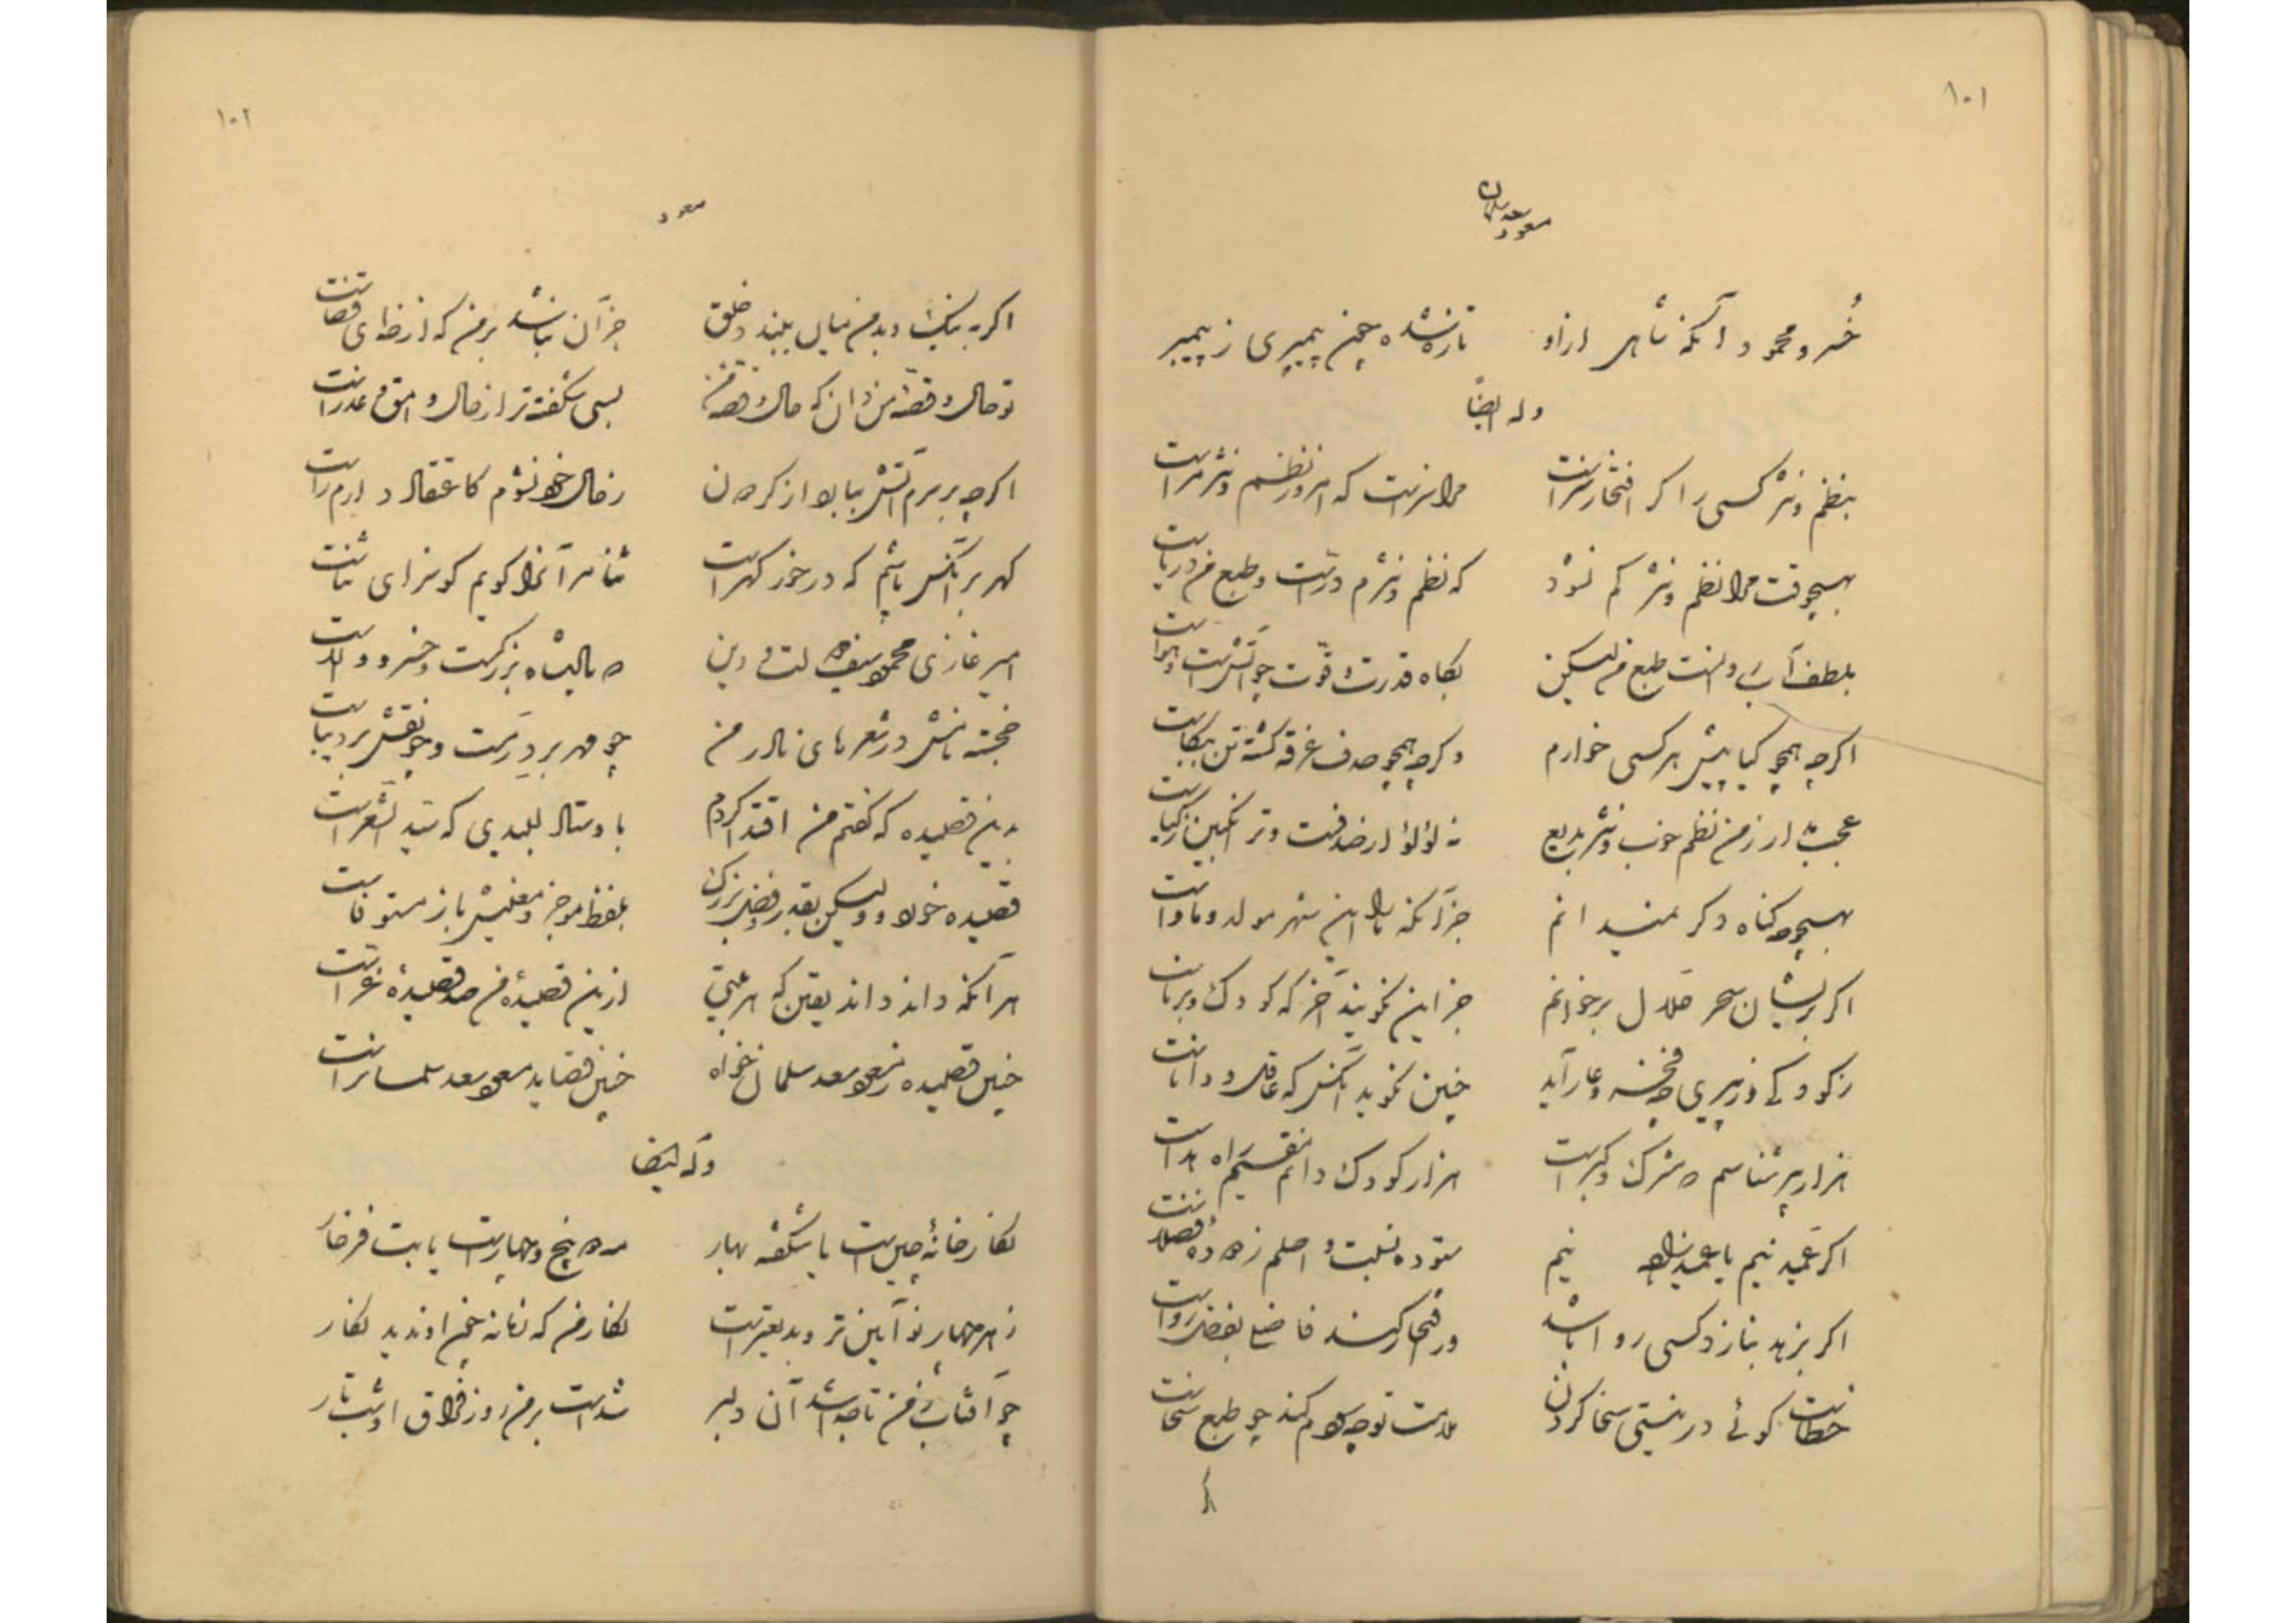 ۱۰۱
مسعود سعد سلمان
خسرو محمود آنکه شاهی ازاو تازه شده چون پیمبری ز پیمبر
وله ایضاً
بنظم و نثر کسی را گر افتخار سزاست مرا سزاست که امروز نظم و نثر مراست
بهیچوقت مرا نظم و نثر کم نشود که نظم و نثرم درّست و طبع من دریاست
بلطف آب روانست طبع من لیکن بگاه قدرت و قوّت چو آتشست و هواست
اگرچه همچو گیا پیش هر کسی خوارم وگرچه همچو صدف غرقه گشته تن بیکاست
عجب مدار ز من نظم خوب و نثر بدیع نه لؤلؤ از صدفست و نه انگبین ز گیاست
بهیچوجه گناه دگر نمیدانم جز آنکه ما را این شهر مولد و ماواست
اگر بریشان سحر حلال برخوانم جز این نگویند آخر که کودک و برناست
ز کودکی و ز پیری چه فخر و عار آید چنین نگوید آنکس که عاقل و داناست
هزار پیر شناسم که مشرک و گبرست هزار کودک دانم نقسیم راه هداست
اگر عمید نیم یا عمیدزاده نیم ستوده نسبت و اصلم ز دوده فضلاست
اگر بزهد بنازد کسی روا باشد ور افتخار کند فاضلی بفضل رواست
خطاست گوئی در نیستی سخا کردن ملامت تو چه سودم کند چو طبع سخاست
اگر
۱۰۲
مسعود
اگر به نیک و بد من نیاید بلند و خلق جز آن نباشد بر من که از خدای قضاست
تو حال و قصّه من دان که حال و قصّه من بسی شگفته‌تر از حال وامق و عذراست
اگرچه بر سرم آتش ببارد از گردون ز حال خود نشوم کاعتقاد دارم راست
گهر بر آنکس پاشم که در خور گهرست ثنا مر آنرا گویم که او سزای ثناست
امیر غازی محمود سیف دولت و دین که پادشاه بزرگست و خسرو والاست
خجسته نامش در شعرهای نادر من چو مهر بر درمست و چو نقش بر دیباست
بدین قصیده که گفتم من اقتدا کردم باوستاد لبیبی که سید الشعراست
قصیده خرد و ولیکن بقدر و فضل بزرگ بلفظ موجز و معنیش باز مستوفاست
هر آنکه داند داند یقین که هر بیتی ازین قصیدهٔ من صد قصیدهٔ غرّاست
چنین قصیده ز مسعود سعد سلمان خواه چنین قصاید مسعود سعد سلمانراست
وله ایضا
نگارخانهٔ چین است یا شکفته بهار مه دو پنج و چهارست یا بت فرخار
ز هر چهار نو آیین‌تر و بدیعترست نگار من که زمانه چنو ندید نگار
چو آفتاب ز من تا جدا شد آن دلبر شدست بر من روز فراق او شب تار